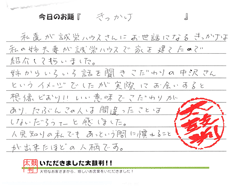 今日のお題『 きっかけ 』
私達が誠栄ハウスさんにお世話になるきっかけは
私の姉夫妻が誠栄ハウスで家を建てたので
紹介して もらいました。
姉からいろいろ話を聞き こだわりの中沢さん
というイメージでしたが実際にお会いすると
想像どおり!! いい意味でこだわりが
あり たぶんこの人は間違ったことは
しないだろうなーと感じました。
人見知りの私でも あっという間に慣れること
が出来たほどの人柄です。
太鼓判
いただきました大鼓判!!